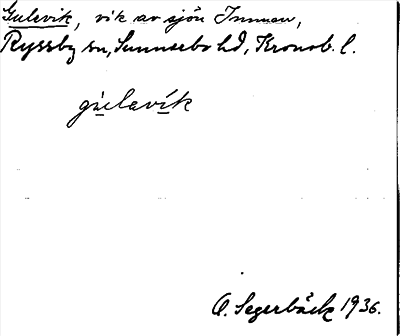 Gulevik, vik av sjön Innaren,
Ryssby sn, Sunnerbo hd, Kronob. l.
gulavík
O. Segerbäck 1936.